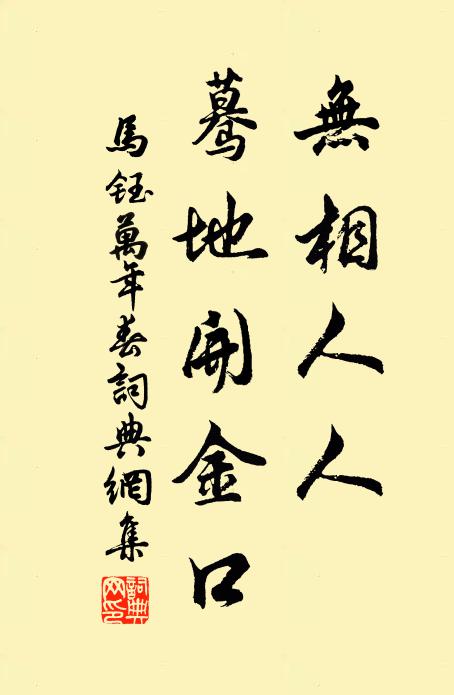 無相人人
驀地開金口
馬鈺萬年春詞典網集
詞典网印